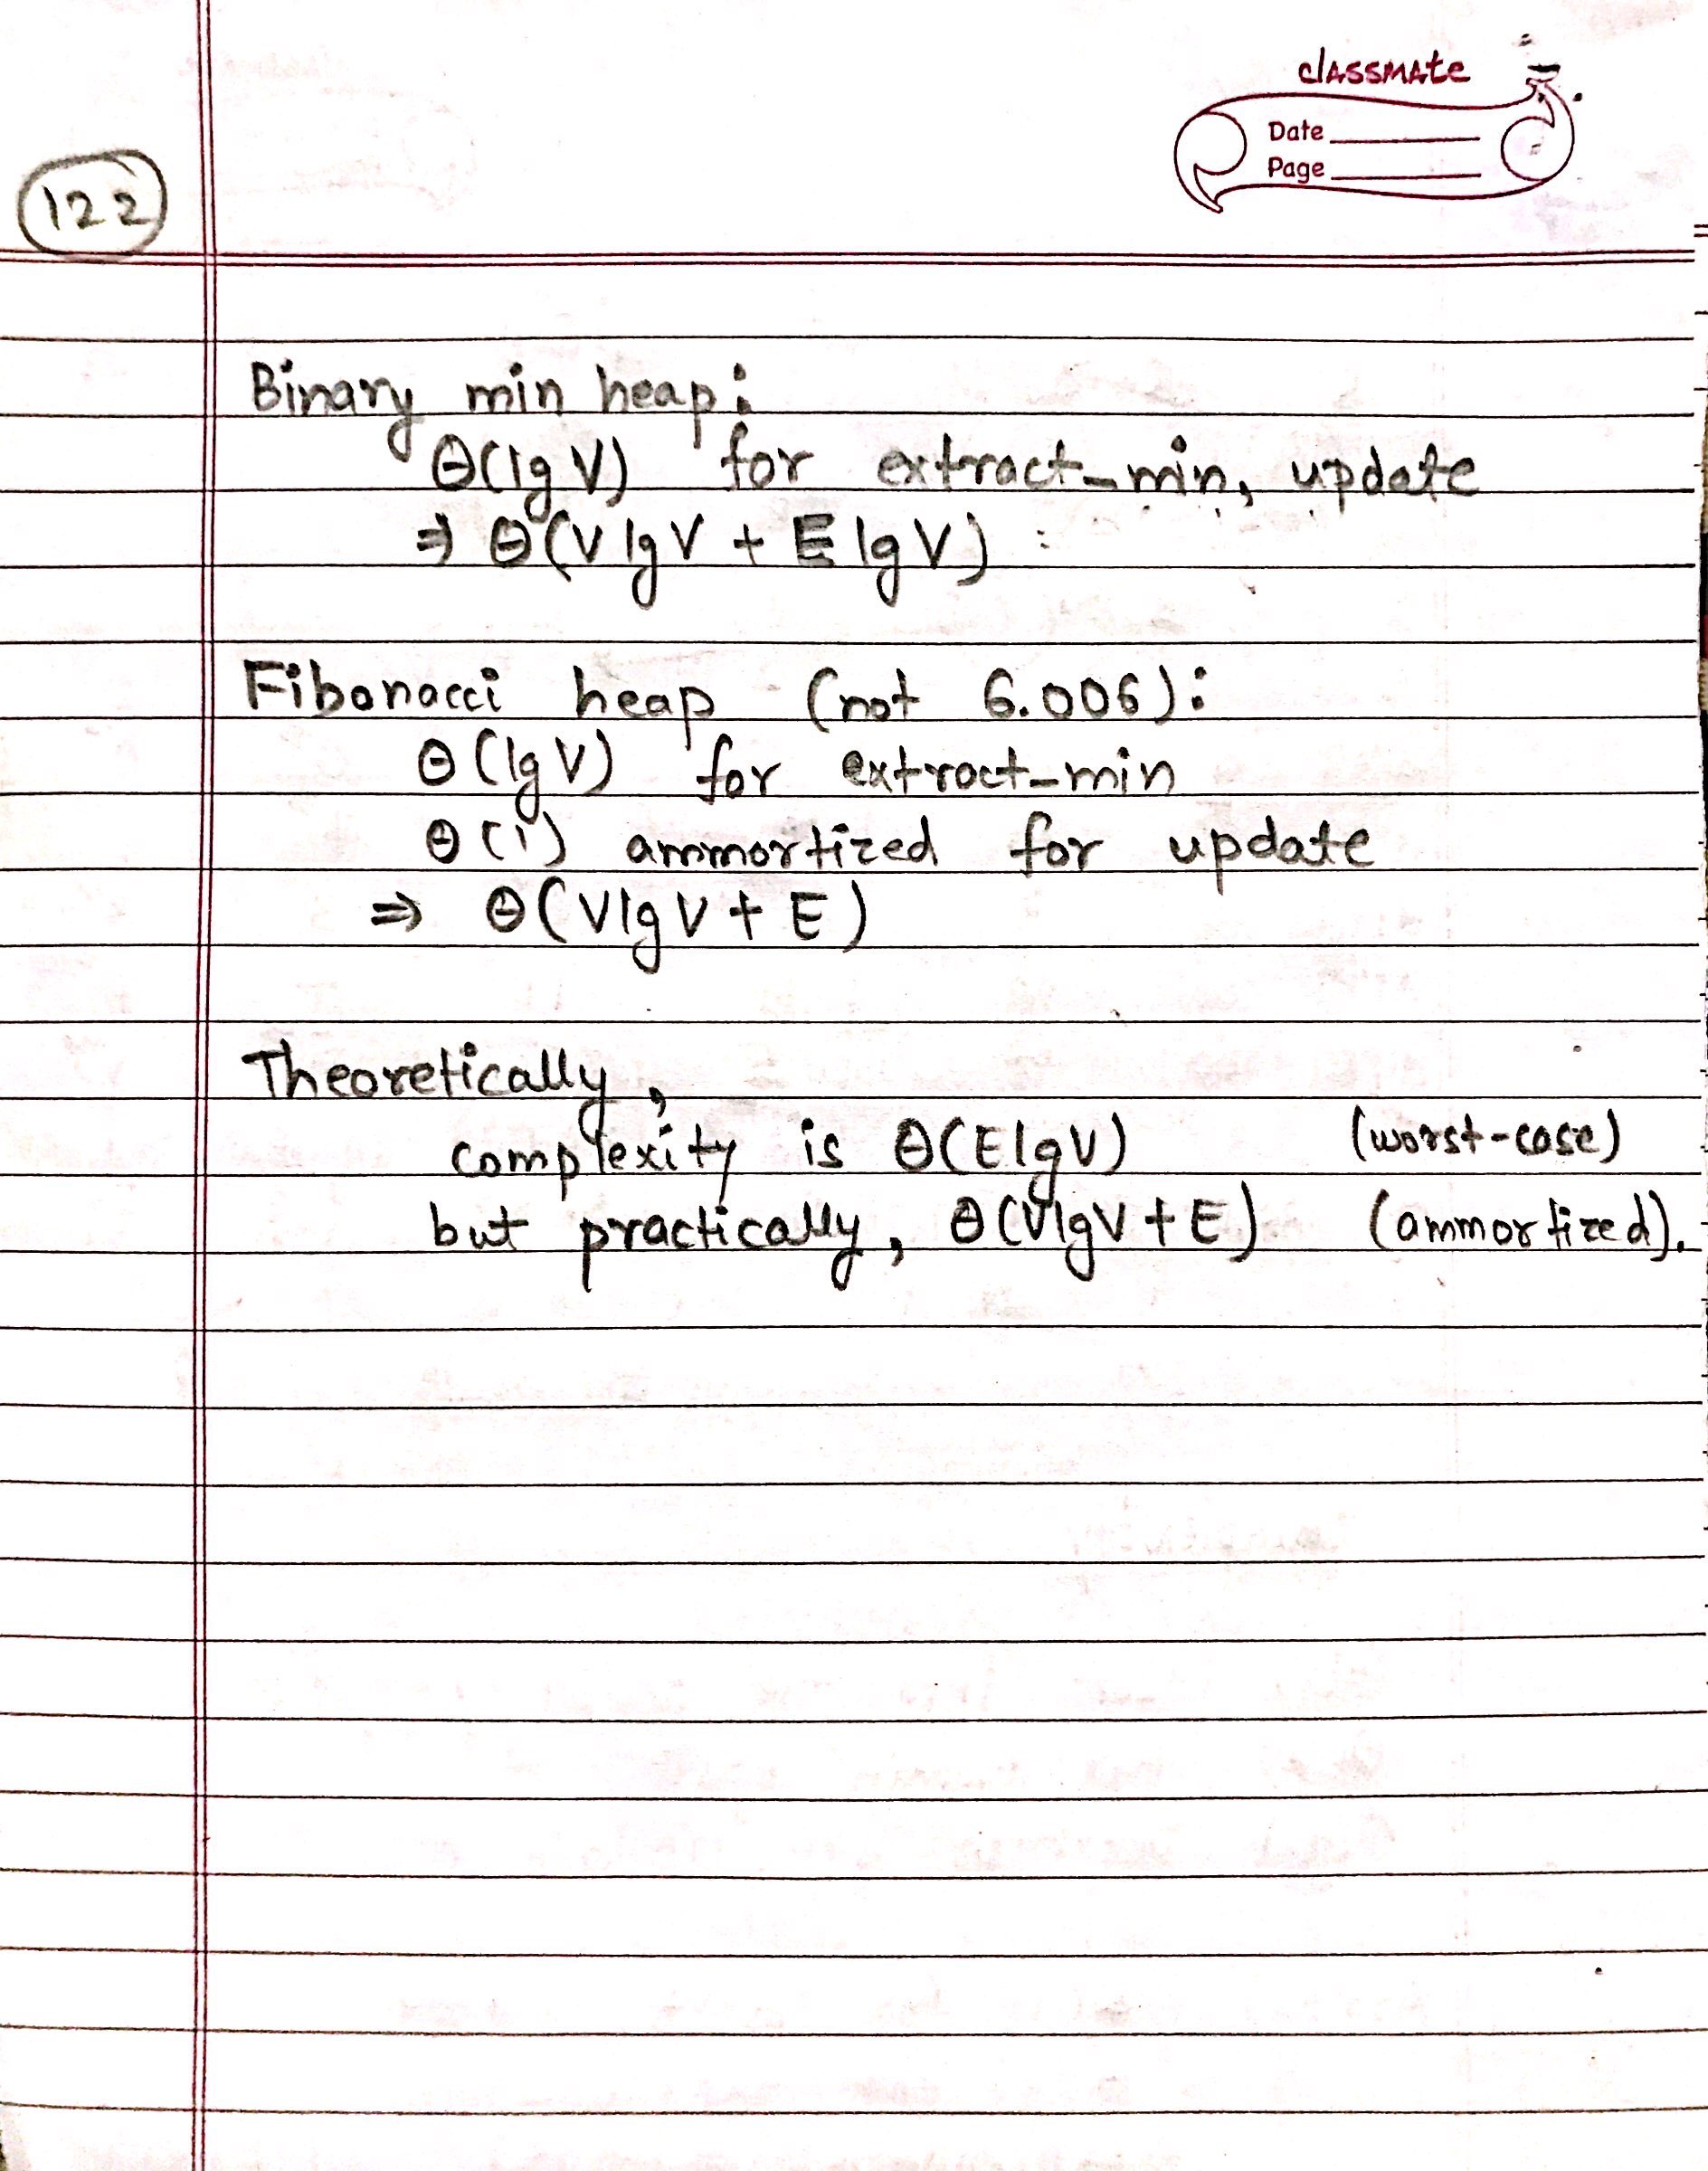 classmate
Date
Page
122
Binary min heap:
Θ(lg V) for extract_min, update
⇒ Θ(V lg V + E lg V)
Fibonacci heap (not 6.006):
Θ(lg V) for extract_min
Θ(1) ammortized for update
⇒ Θ(V lg V + E)
Theoretically,
complexity is Θ(E lg V) (worst-case)
but practically, Θ(V lg V + E) (ammortized).